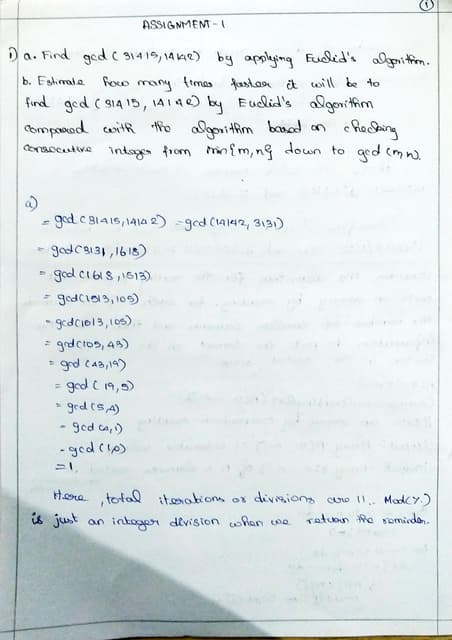 1
ASSIGNMENT-1
1) a. Find gcd (31415,14142) by applying Euclid's algorithm.
b. Estimate how many times faster it will be to
find gcd (31415, 14142) by Euclid's algorithm
compared with the algorithm based on checking
consecutive integer from min{m,n} down to gcd (m,n).
a)
= gcd (31415,14142) = gcd (14142, 3131)
= gcd (3131, 1618)
= gcd (1618, 1513)
= gcd (1513, 105)
= gcd (1013, 105)
= gcd (105, 43)
= gcd (43,19)
= gcd (19, 5)
= gcd (5,4)
- gcd (4,1)
- gcd (1,0)
= 1.
Here, total iterations or divisions are 11,. Mod(%)
is just an integer division when we return the reminder.